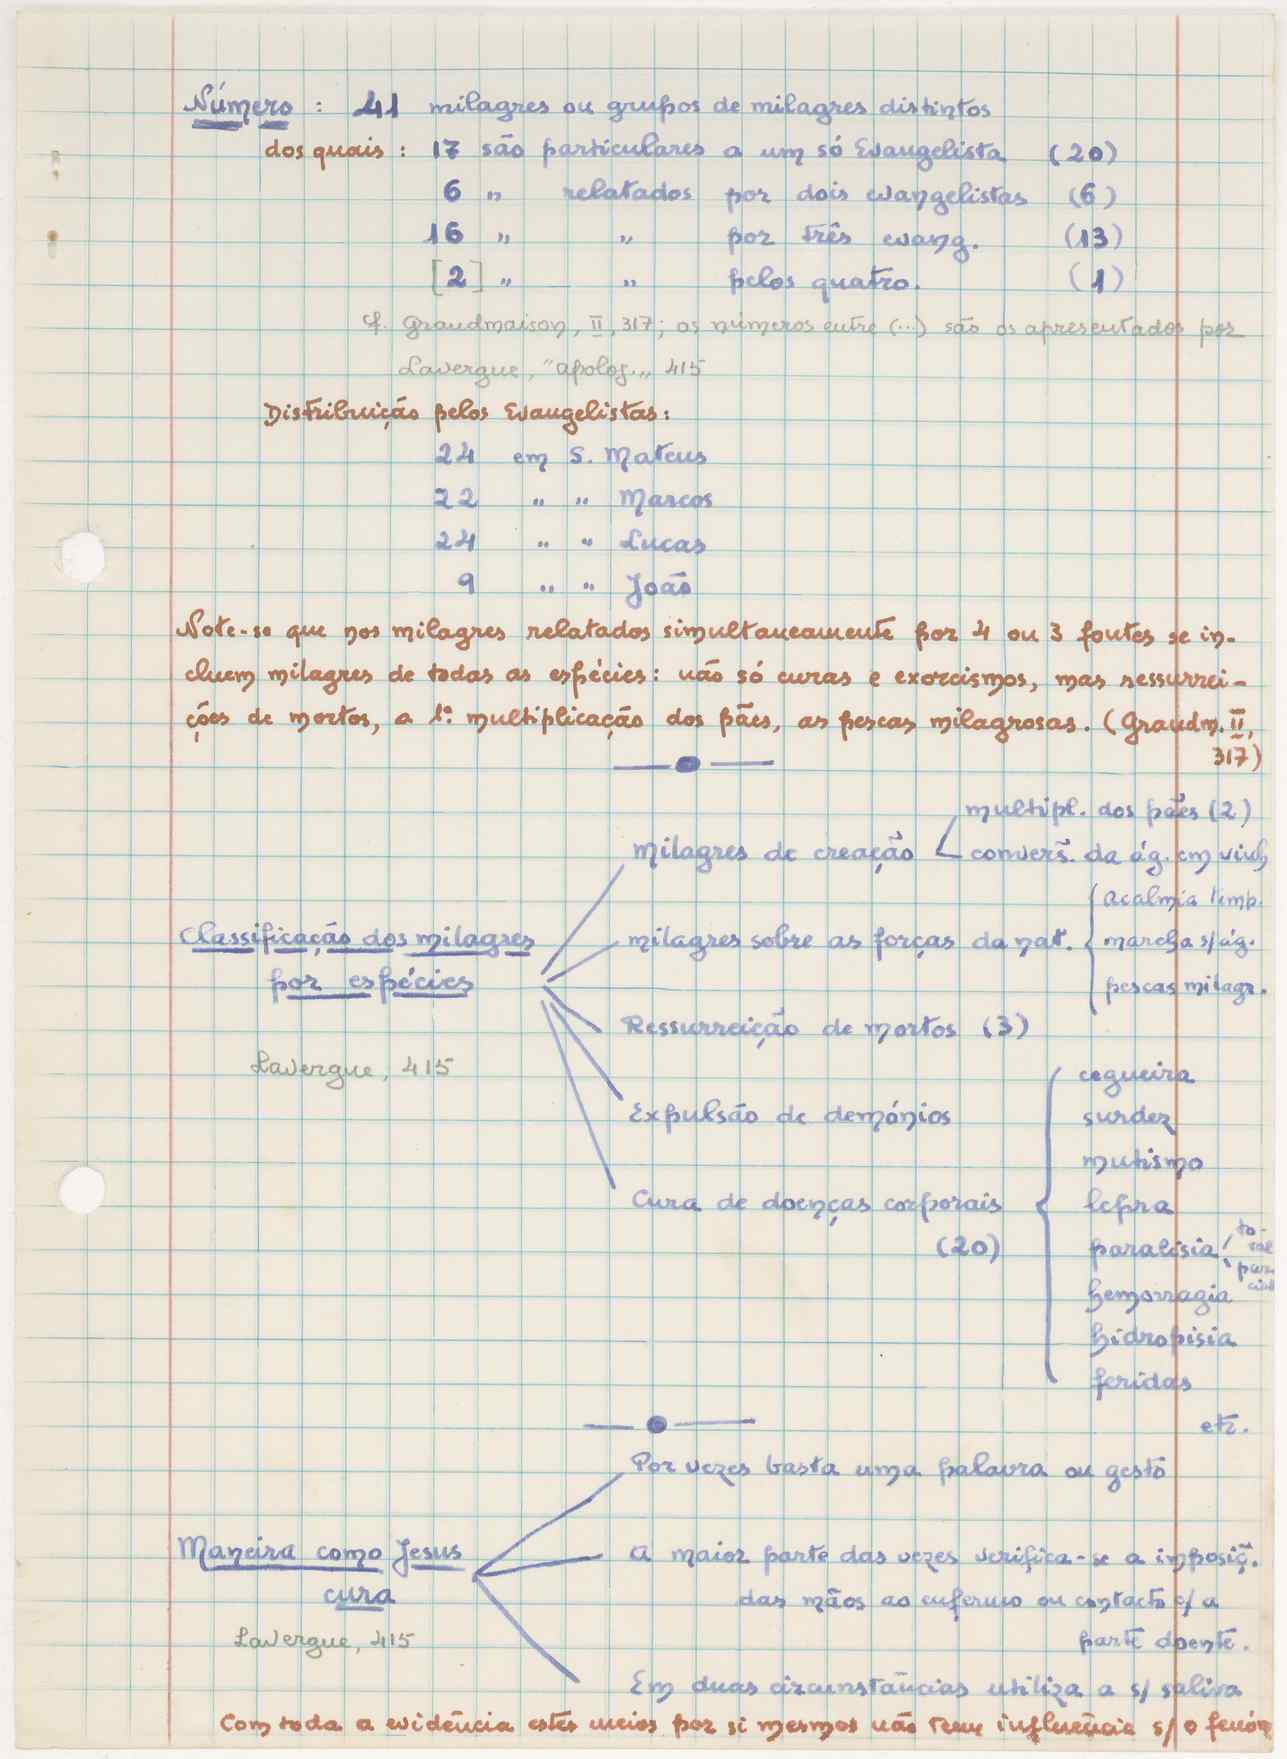 Número : 41 milagres ou grupos de milagres distintos
dos quais : 17 são particulares a um só Evangelista (20)
6 " relatados por dois evangelistas (6)
16 " " por três evang. (13)
[2] " " pelos quatro. (1)
cf. Grandmaison, II, 317; os números entre (...) são os apresentados por
Lavergue, "apolog.", 415
Distribuição pelos Evangelistas:
24 em S. Mateus
22 " " Marcos
24 " " Lucas
9 " " João
Note-se que nos milagres relatados simultaneamente por 4 ou 3 fontes se in-
cluem milagres de todas as espécies: não só curas e exorcismos, mas ressurrei-
ções de mortos, a 1ª multiplicação dos pães, as pescas milagrosas. (Grandm. II,
317)
multipl. dos pães (2)
milagres de creação
convers. da ág. em vinh
acalmia temp.
Classificação dos milagres
milagres sobre as forças da nat.
marcha s/ág.
por espécies
pescas milagr.
Ressurreição de mortos (3)
Lavergue, 415
cegueira
Expulsão de demónios
surdez
mutismo
Cura de doenças corporais
lepra
(20)
paralisia
to-
tal
par-
cial
hemorragia
hidropisia
feridas
etc.
Por vezes basta uma palavra ou gesto
Maneira como Jesus
A maior parte das vezes verifica-se a imposiç.
cura
das mãos ao enfermo ou contacto c/ a
Lavergue, 415
parte doente.
Em duas circunstâncias utiliza a s/ saliva
Com toda a evidência estes meios por si mesmos não tem influência s/ o fenóm